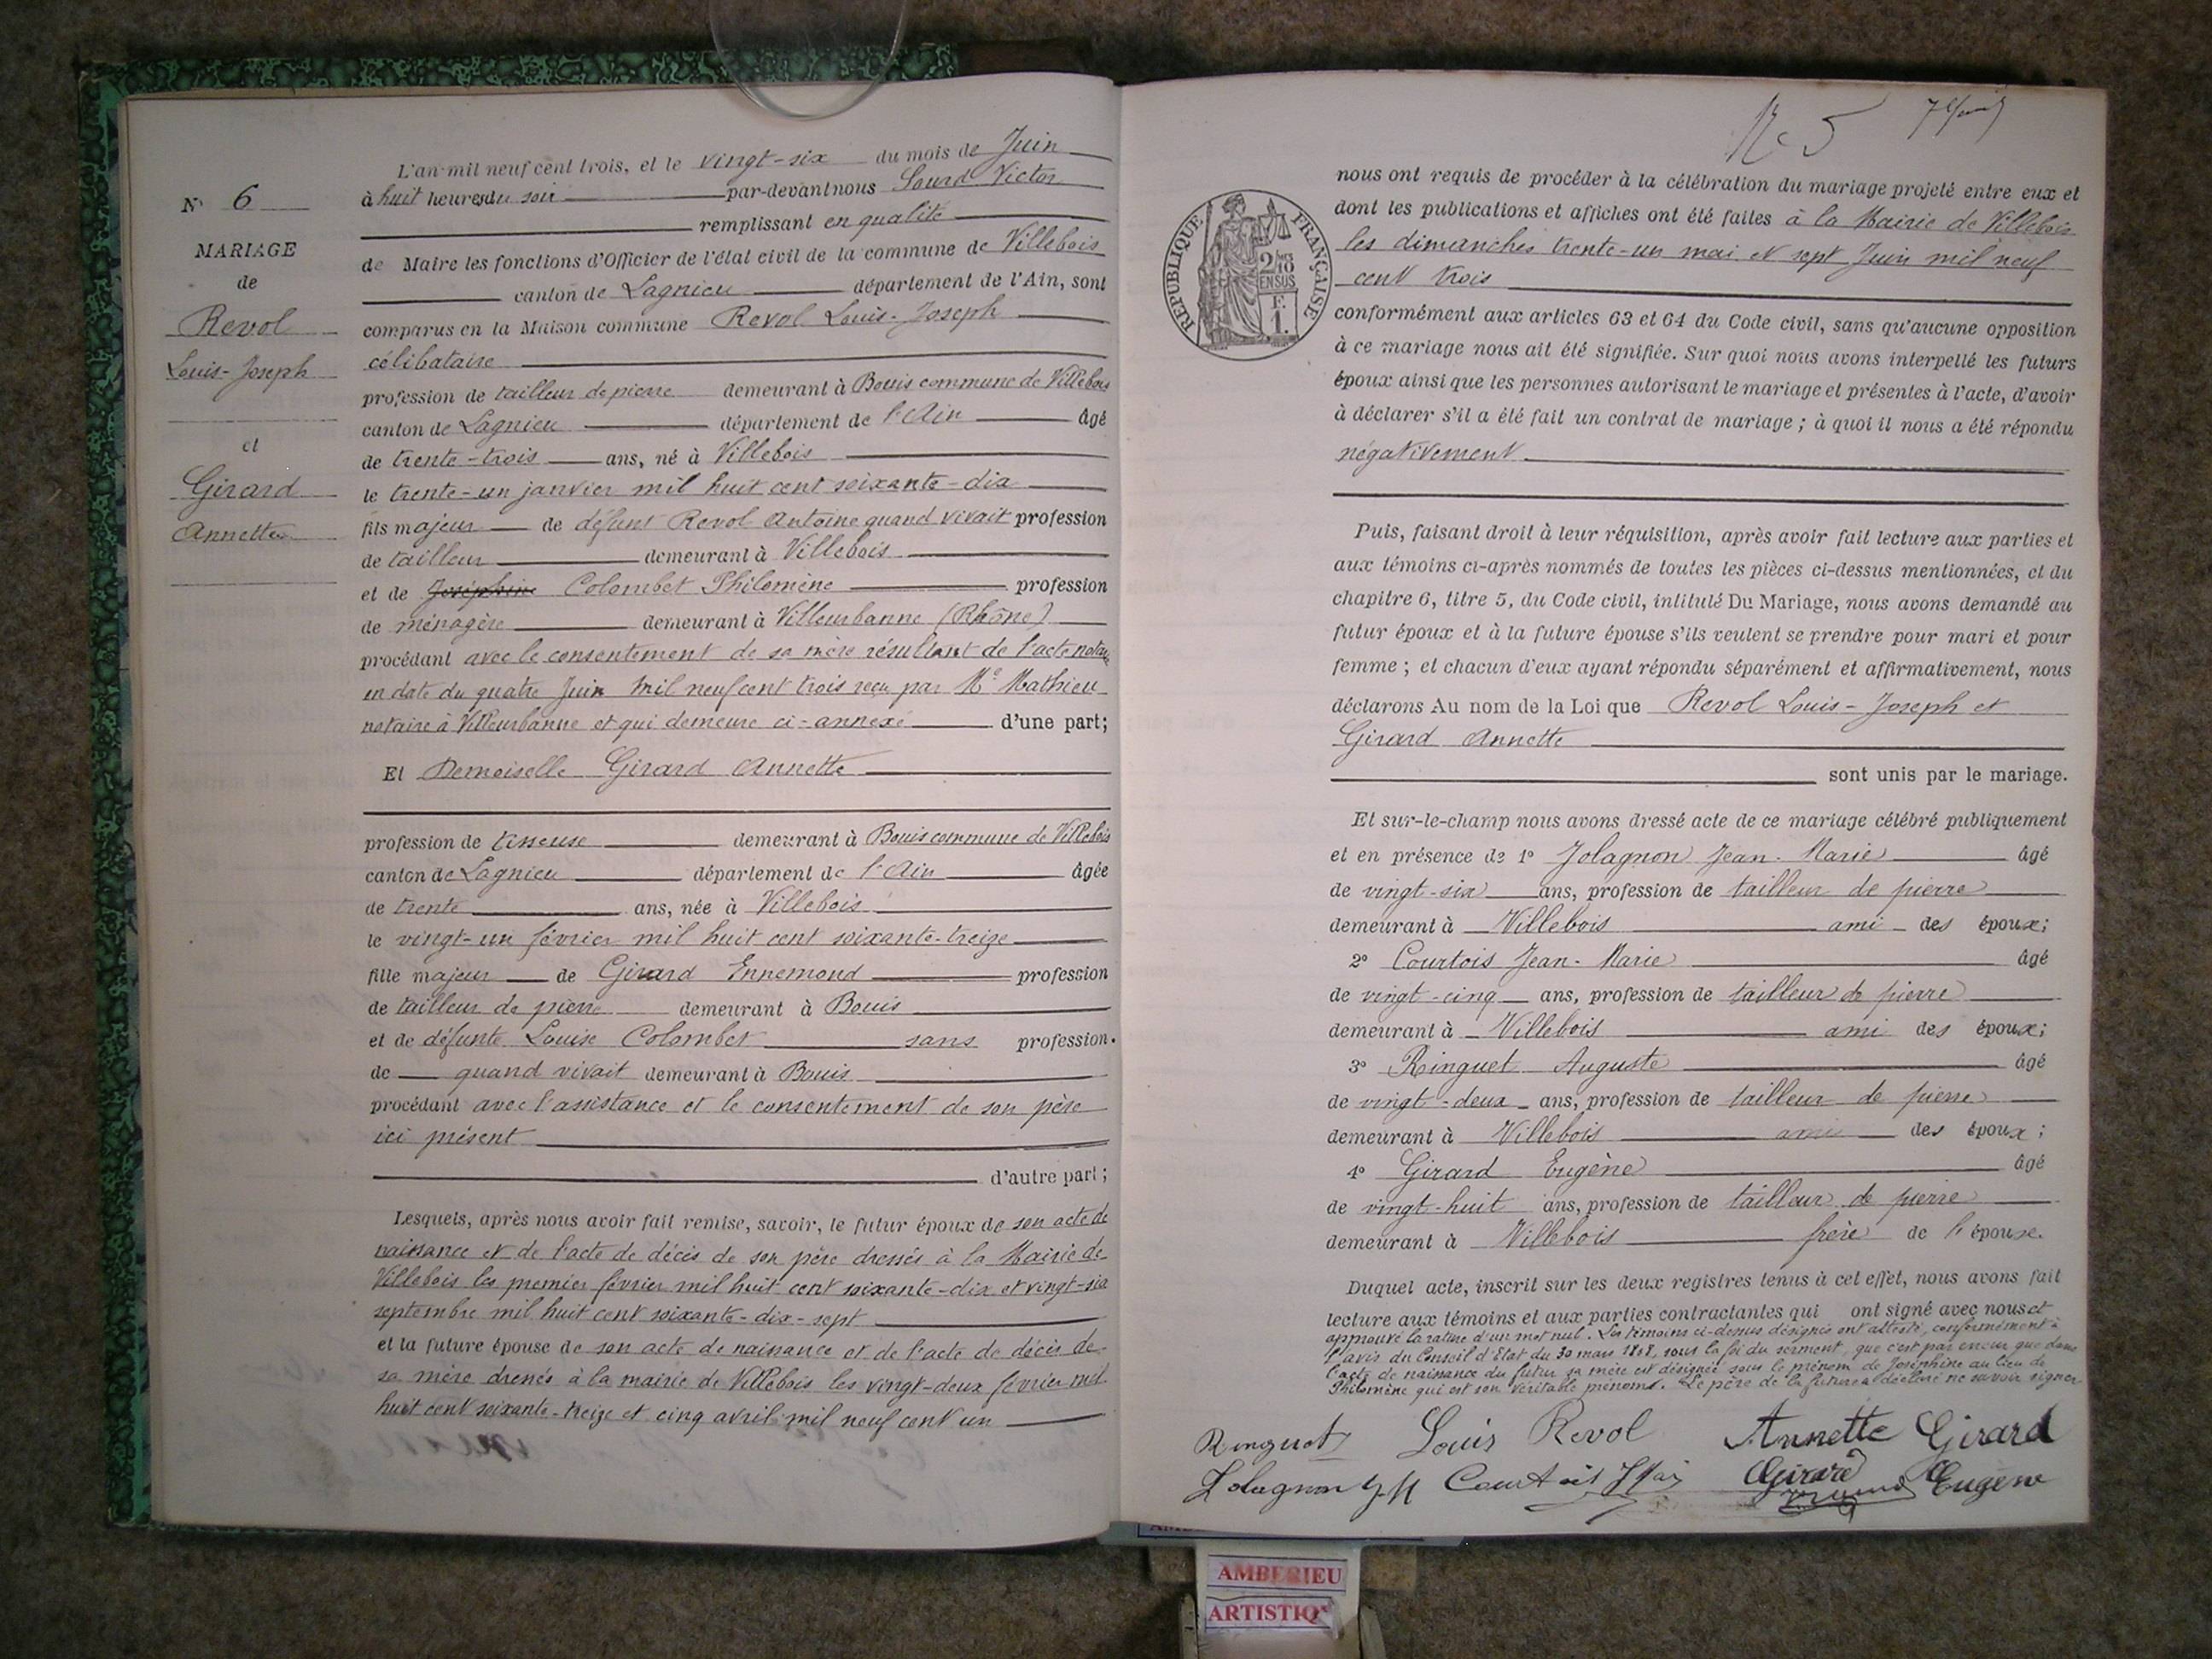 N° 6
MARIAGE
de
Revol
Louis-Joseph
et
Girard
Annette
L'an mil neuf cent trois, et le vingt-six du mois de Juin
à huit heures du soir par-devant nous Sourd Victor
remplissant en qualité
de Maire les fonctions d'Officier de l'état civil de la commune de Villebois
canton de Lagnieu département de l'Ain, sont
comparus en la Maison commune Revol Louis-Joseph
célibataire
profession de tailleur de pierre demeurant à Bouis commune de Villebois
canton de Lagnieu département de l'Ain âgé
de trente-trois ans, né à Villebois
le trente-un janvier mil huit cent soixante-dix
fils majeur de défunt Revol Antoine quand vivait profession
de tailleur demeurant à Villebois
et de Joséphine Colombet Philomène profession
de ménagère demeurant à Villeurbanne (Rhône)
procédant avec le consentement de sa mère résultant de l'acte notarié
en date du quatre Juin mil neuf cent trois reçu par Me Mathieu
notaire à Villeurbanne et qui demeure ci-annexé d'une part;
Et Demoiselle Girard Annette
profession de tisseuse demeurant à Bouis commune de Villebois
canton de Lagnieu département de l'Ain âgée
de trente ans, née à Villebois
le vingt-un février mil huit cent soixante-treize
fille majeur de Girard Ennemond profession
de tailleur de pierre demeurant à Bouis
et de défunte Louise Colombet sans profession.
de quand vivait demeurant à Bouis
procédant avec l'assistance et le consentement de son père
ici présent
d'autre part;
Lesquels, après nous avoir fait remise, savoir, le futur époux de son acte de
naissance et de l'acte de décès de son père dressés à la Mairie de
Villebois les premier février mil huit cent soixante-dix et vingt-six
septembre mil huit cent soixante-dix-sept
et la future épouse de son acte de naissance et de l'acte de décès de
sa mère dressés à la mairie de Villebois les vingt-deux février mil
huit cent soixante-treize et cinq avril mil neuf cent un
N° 5
RÉPUBLIQUE FRANÇAISE
2/10 EN SUS
F.
1.
nous ont requis de procéder à la célébration du mariage projeté entre eux et
dont les publications et affiches ont été faites à la Mairie de Villebois
les dimanches trente-un mai et sept Juin mil neuf
cent trois
conformément aux articles 63 et 64 du Code civil, sans qu'aucune opposition
à ce mariage nous ait été signifiée. Sur quoi nous avons interpellé les futurs
époux ainsi que les personnes autorisant le mariage et présentes à l'acte, d'avoir
à déclarer s'il a été fait un contrat de mariage ; à quoi il nous a été répondu
négativement
Puis, faisant droit à leur réquisition, après avoir fait lecture aux parties et
aux témoins ci-après nommés de toutes les pièces ci-dessus mentionnées, et du
chapitre 6, titre 5, du Code civil, intitulé Du Mariage, nous avons demandé au
futur époux et à la future épouse s'ils veulent se prendre pour mari et pour
femme ; et chacun d'eux ayant répondu séparément et affirmativement, nous
déclarons Au nom de la Loi que Revol Louis-Joseph et
Girard Annette
sont unis par le mariage.
Et sur-le-champ nous avons dressé acte de ce mariage célébré publiquement
et en présence de 1° Jolagnon Jean-Marie âgé
de vingt-six ans, profession de tailleur de pierre
demeurant à Villebois ami des époux;
2° Courtois Jean-Marie âgé
de vingt-cinq ans, profession de tailleur de pierre
demeurant à Villebois ami des époux;
3° Ringuet Auguste âgé
de vingt-deux ans, profession de tailleur de pierre
demeurant à Villebois ami des époux;
4° Girard Eugène âgé
de vingt-huit ans, profession de tailleur de pierre
demeurant à Villebois frère de l'épouse.
Duquel acte, inscrit sur les deux registres tenus à cet effet, nous avons fait
lecture aux témoins et aux parties contractantes qui ont signé avec nous et
approuvé la rature d'un mot nul. Les témoins ci-dessus désignés ont attesté, conformément à
l'avis du Conseil d'Etat du 30 mars 1808, sous la foi du serment, que c'est par erreur que dans
l'acte de naissance du futur sa mère est désignée sous le prénom de Joséphine au lieu de
Philomène qui est son véritable prénom. Le père de la future a déclaré ne savoir signer
Ringuet Louis Revol Annette Girard
Jolagnon J-M Courtois J Mari Girard Eugène
AMBERIEU
ARTISTIQ